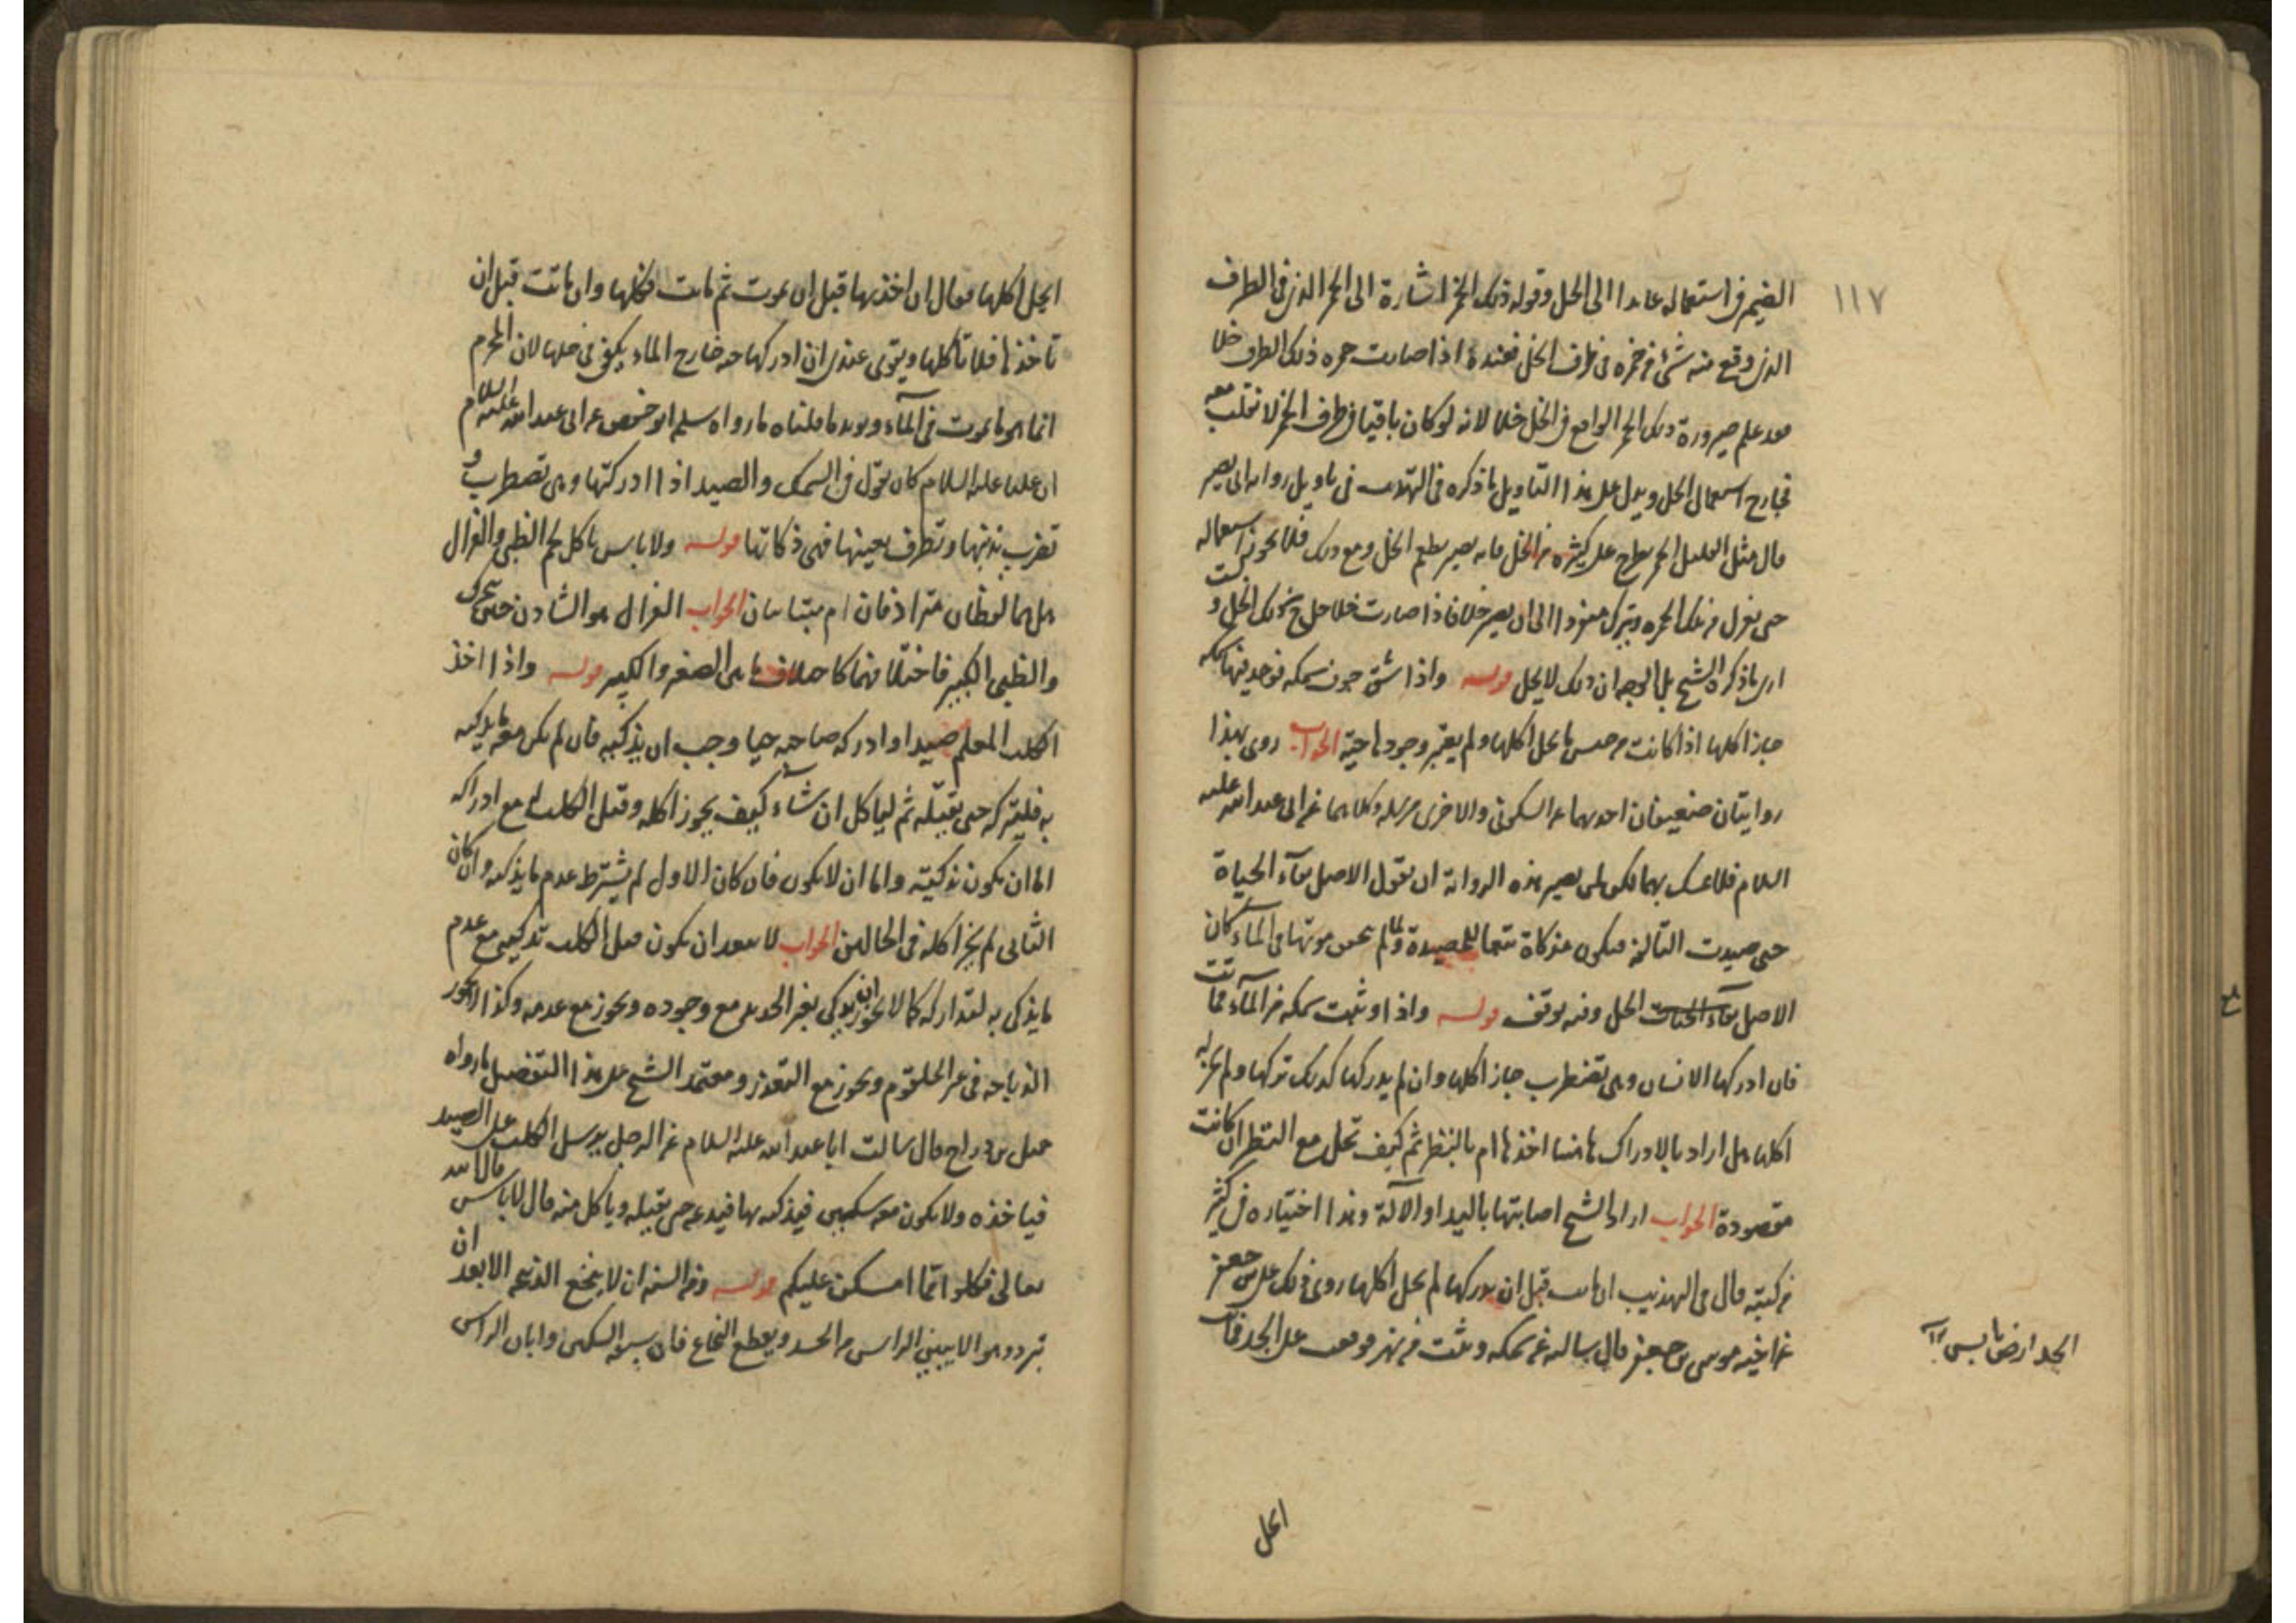 ١١٧
الضمير في استعماله عايدا الى الخل وقوله ذلك الخمر اشارة الى الخمر الذي في الظرف
الذي وقع منه شئ من خمره في ظرف الخل فعنده اذا صارت خمره ذلك الظرف خلا
بعد علم صيرورة ذلك الخمر الواقع في الخل خلا لانه لو كان باقيا في ظرف الخمر لانقلب معه
استعمال الخل ويدل على هذا التاويل ما ذكره في في تاويل رواية ابي بصير
قال مثل القليل الخمر يطرح على كثيره من الخل فانه يصير بطعم الخل ومع ذلك فلا يجوز استعماله
حتى يعزل من تلك الخمره ويترك مفردا الى ان يصير خلا فاذا صارت خلا حل ذلك الخل و
ارى ما ذكره الشيخ بل الوجه ان ذلك لا يحل قوله واذا شق جوف سمكه فوجد فيها سمكه
جاز اكلها اذا كانت من جنس ما يحل اكلها ولم يعتبر وجودها حية الجواب روى بهذا
روايتان ضعيفتان احديهما عن السكوني والاخرى مرسله وكلاهما عن ابي عبد الله عليه
السلام فلا تمسك بهما لكن لمن يصير هذه الرواية ان يقول الاصل بقاء الحياة
حتى صيدت الثالثة فيكون مذكاة تبعا للمصيدة ولما لم يحس موتها في الماء كان
الاصل بقاء الحياة الحل وفيه توقف قوله واذا وثبت سمكه من الماء فماتت
فان ادركها الانسان وهي تضطرب جاز اكلها وان لم يدركها كذلك تركها ولم يجز له
اكلها هل اراد بالادراك هاهنا اخذها ام بالنظر ثم كيف تحل مع النظر ان كانت
مقصودة الجواب اراد الشيخ اصابتها باليد او الآلة وهذا اختياره في كثير
من كتبه قال في التهذيب ان ماتت قبل ان يدركها لم يحل اكلها روى ذلك علي بن جعفر
عن اخيه موسى بن جعفر قال سالته عن سمكه وثبت من نهر فوقعت على الجد فماتت
الجد ارض يابس
ايحل
ايحل اكلها فقال ان اخذتها قبل ان تموت ثم ماتت فكلها وان ماتت قبل ان
تاخذها فلا تاكلها ويقوى عندي ان ادركها حيه خارج الماء يكفي في حلها لان المحرم
انما هو ما يموت في المآء ويؤيد ما قلناه ما رواه سلمه ابو حفص عن ابي عبد الله عليه السلام
ان عليا عليه السلام كان يقول في السمك والصيد اذا ادركتها وهي تضطرب و
تضرب بذنبها وتطرف بعينها فهي ذكاتها قوله ولا باس باكل لحم الظبي والغزال
هل هما لفظان مترادفان ام متباينان الجواب الغزال هو الشادن حتى يتحرك
والظبي الكبير فاختلافهما كاختلاف ما بين الصغير والكبير قوله واذا اخذ
الكلب المعلم صيدا وادركه صاحبه حيا وجب ان يذكيه فان لم يكن معه ما يذكيه
به فليتركه حتى يقتله ثم لياكل ان شاء كيف يجوز اكله وقتل الكلب له مع ادراكه
اما ان يكون تذكيته واما ان لا يكون فان كان الاول لم يشترط عدم ما يذكيه وان كان
الثاني لم يجز اكله في الحالين الجواب لا يبعد ان يكون قتل الكلب تذكيه مع عدم
ما يذكى به لتداركه كما لا يجوز ان يذكى بغير الحديد مع وجوده ويجوز مع عدمه وكذا لا يجوز
الذباحه في غير الحلقوم ويجوز مع التعذر ومعتمد الشيخ على هذا التفصيل ما رواه
جميل بن دراج قال سالت ابا عبد الله عليه السلام عن الرجل يرسل الكلب على الصيد
فياخذه ولا يكون معه سكين فيذكيه بها فيدعه حتى يقتله وياكل منه قال لا باس قال الله
تعالى فكلوا مما امسكن عليكم قوله ومن السنه ان لا ينخع الذبيحه الا بعد ان
تبرد وهو الا يبين الراس من الجسد ويقطع النخاع فان سبقه السكين وابان الراس